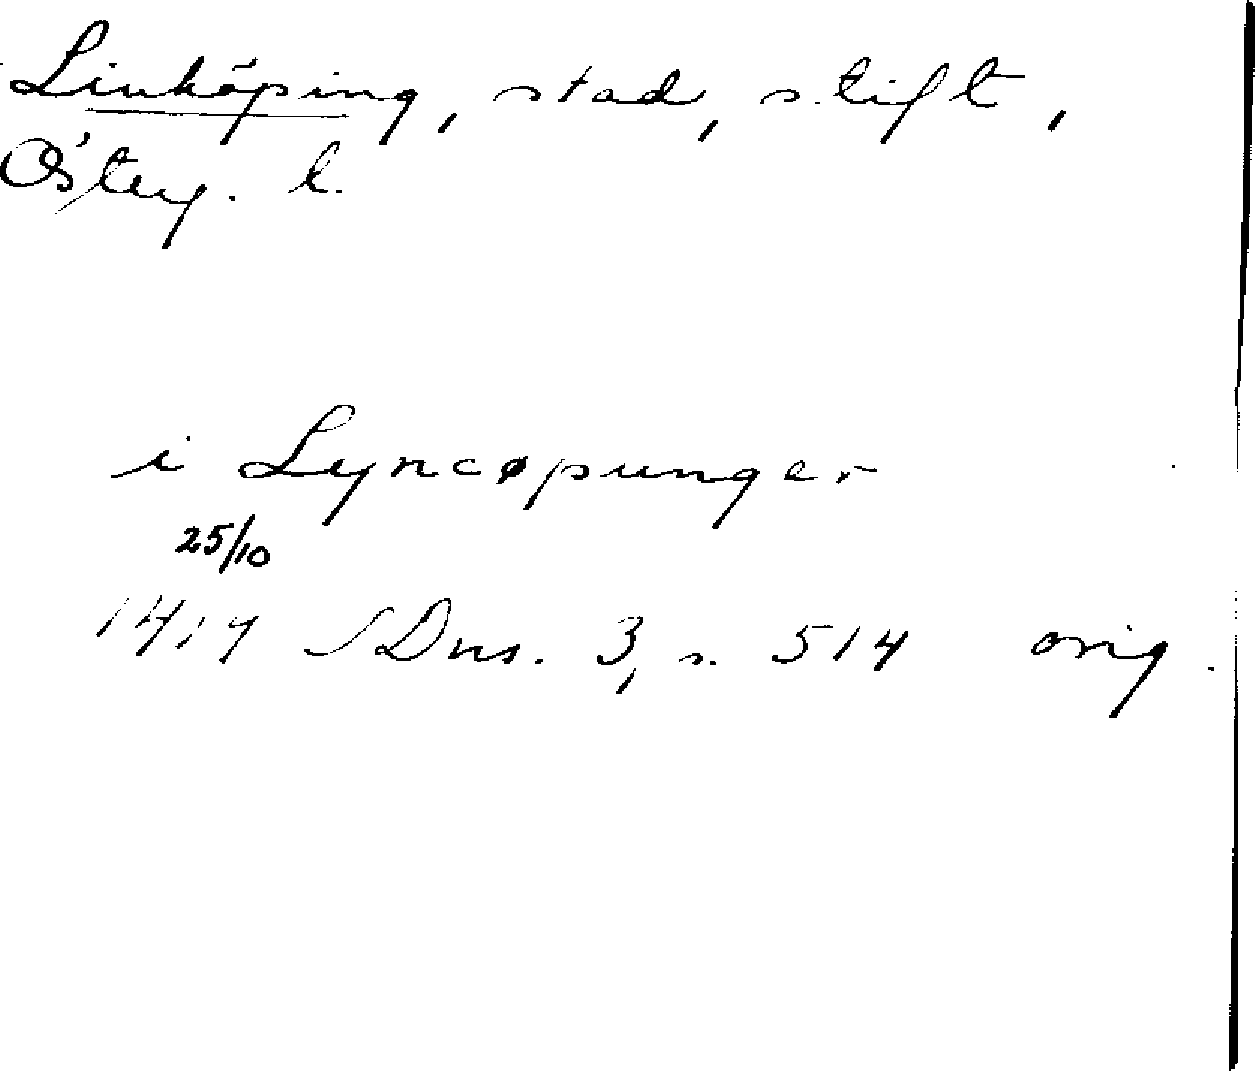 Linköping, stad, stift,
Österg. l.
i Lyncøpunger
25/10
1419 SDns. 3, s. 514 orig.